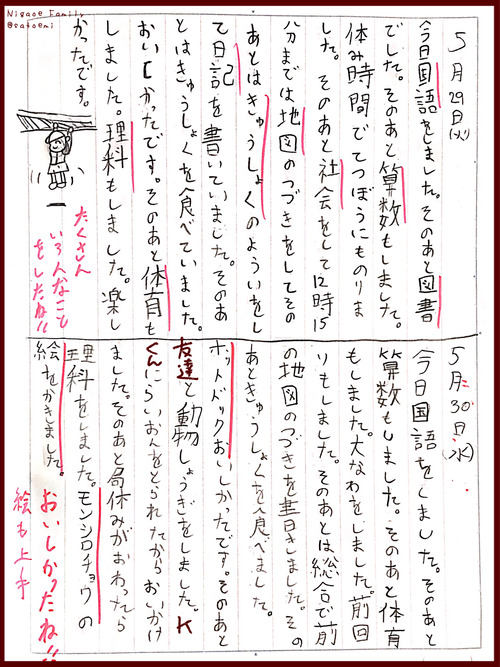 Nigaoe Family
@satoemi
5月29日(火)
今日国語をしました。そのあと図書
でした。そのあと算数もしました。
休み時間でてつぼうにものりま
した。そのあと社会をして12時15
分までは地図のつづきをしてその
あとはきゅうしょくのよういをし
て日記を書いていました。そのあ
とはきゅうしょくを食べていました。
おいしかったです。そのあと体育も
しました。理科もしました。楽し
かったです。
たくさん
いろんなこと
をしたね!!
5月30日(水)
今日国語をしました。そのあと
算数もしました。そのあと体育
もしました。大なわをしました。前回
りもしました。そのあとは総合で前
の地図のつづきを書きました。その
あときゅうしょくを食べました。
ホットドックおいしかったです。そのあと
友達と動物しょうぎをしました。K
くんにらいおんをとられたからおいかけ
ました。そのあと局休みがおわったら
理科をしました。モンシロチョウの
絵をかきました。
おいしかったね!!
絵も上手